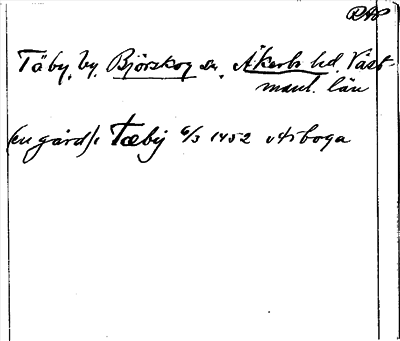 RAP
Täby, by, Björskog sn. Åkerbo hd. Väst-
manl. län
(en gård) i Tæby 6/3 1452 Arboga